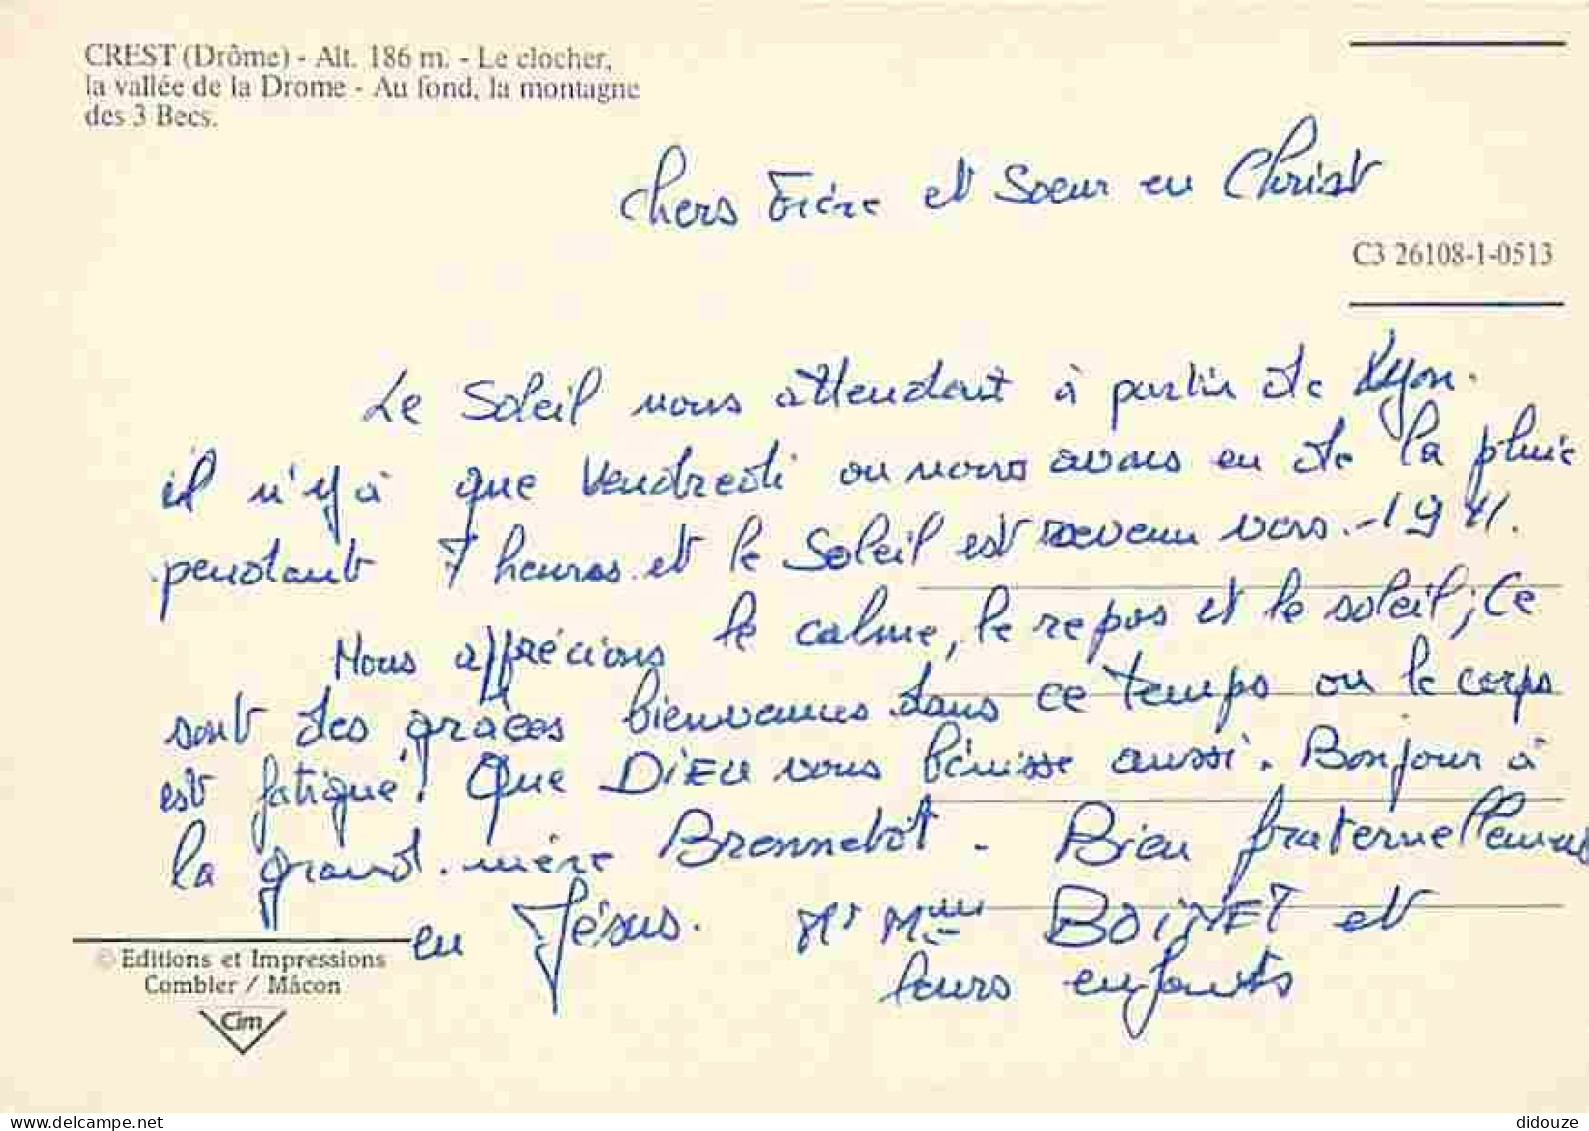 CREST (Drôme) - Alt. 186 m. - Le clocher,
la vallée de la Drome - Au fond, la montagne
des 3 Becs.
Chers Frère et Soeur en Christ
C3 26108-1-0513
Le Soleil nous attendait à partir de Lyon.
il n'y à que Vendredi ou nous avons eu de la pluie
pendant 7 heures et le Soleil est revenu vers 19 H.
Nous apprécions le calme, le repos et le soleil; Ce
sont des grâces bienvenues dans ce temps ou le corps
est fatigué! Que DIEU vous bénisse aussi. Bonjour à
la grand-mère Bronnebôt. Bien fraternellement
en Jésus. Mr Mme BOINET et
leurs enfants
© Editions et Impressions
Combier / Mâcon
Cim
www.delcampe.net
didouze